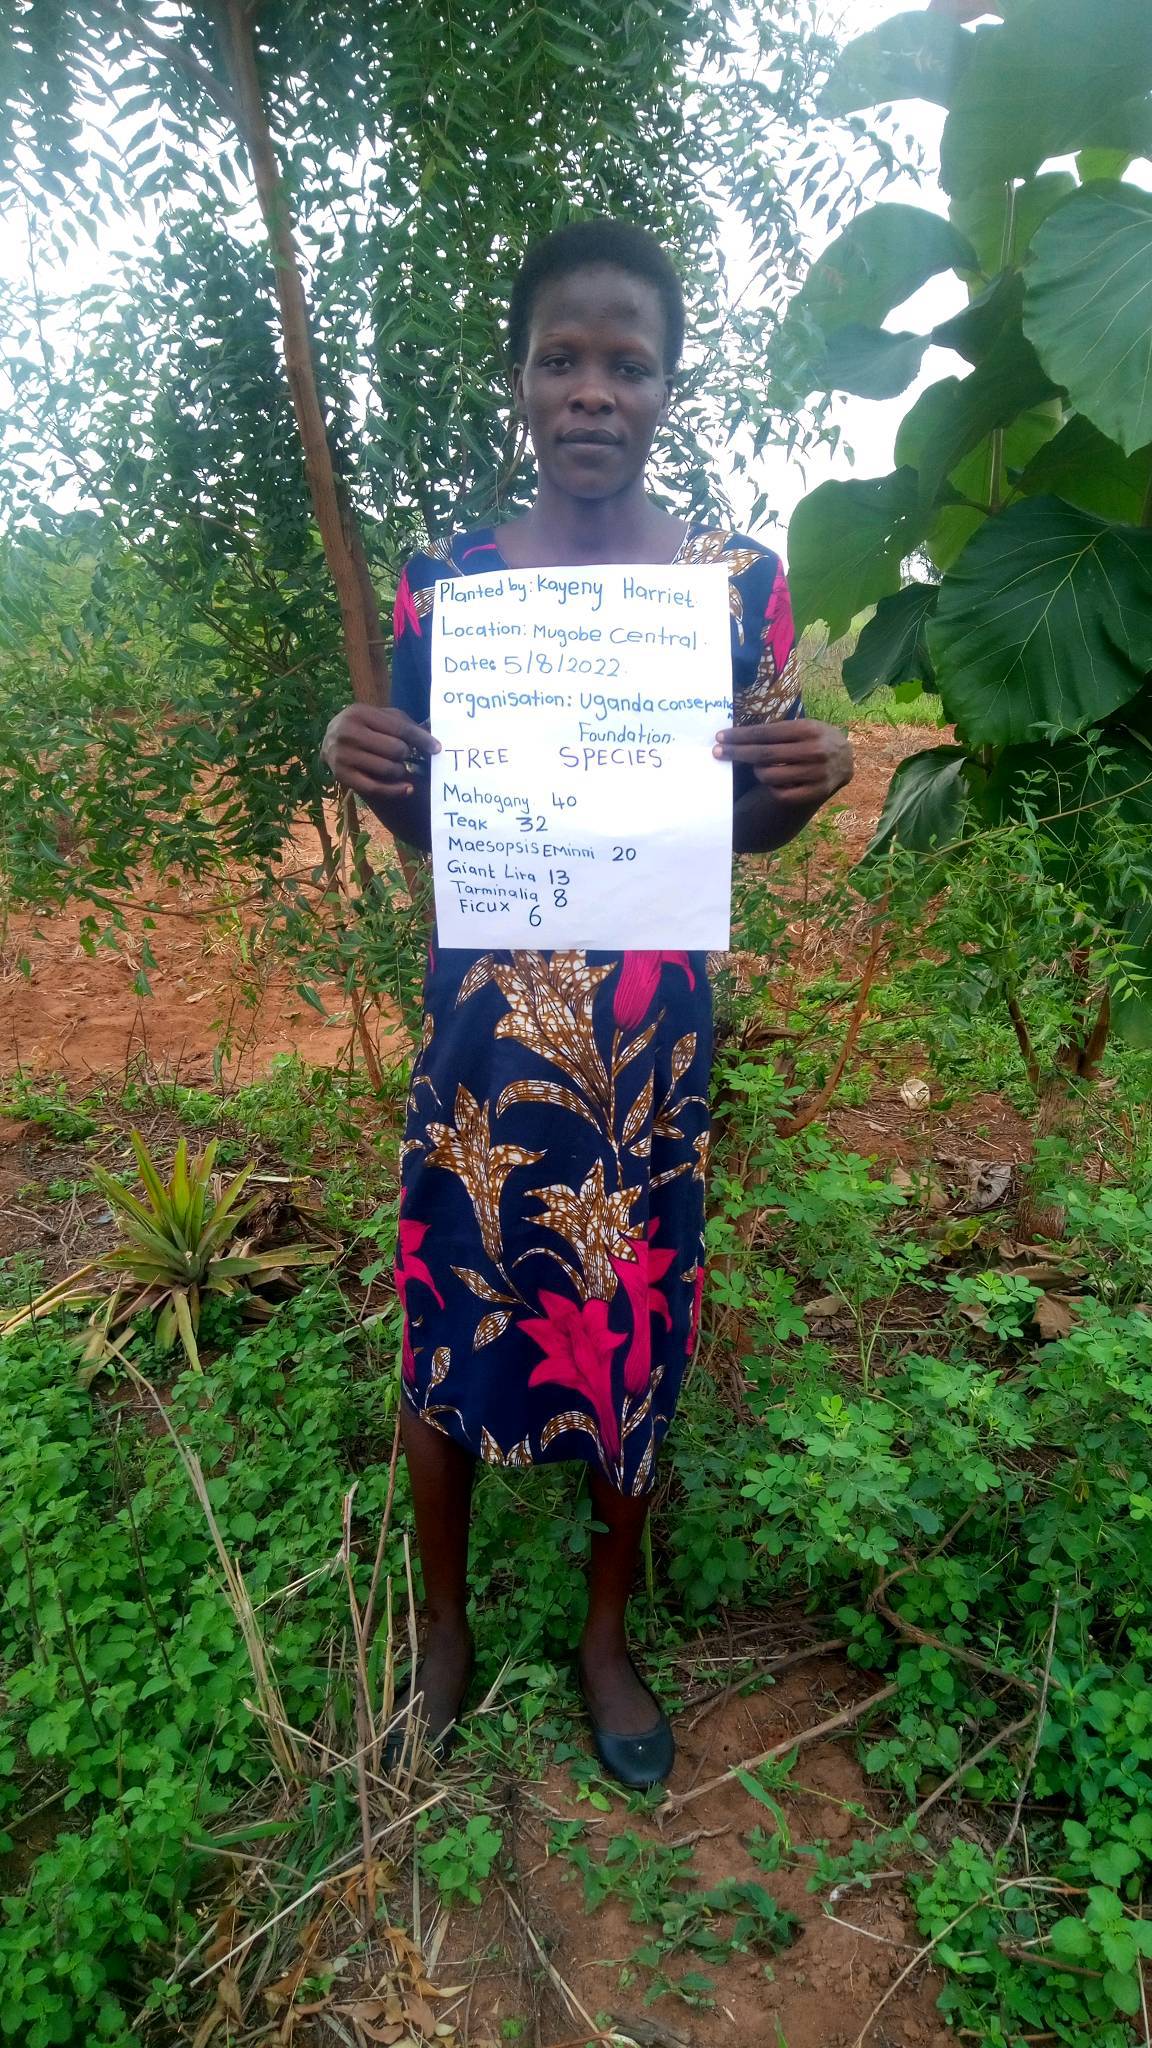 Planted by: Kayeny Harriet.
Location: Mugobe Central.
Date: 5/8/2022.
organisation: Uganda conservation
Foundation.
TREE SPECIES
Mahogany 40
Teak 32
Maesopsis EMinni 20
Giant Lira 13
Tarminalia 8
Ficux 6